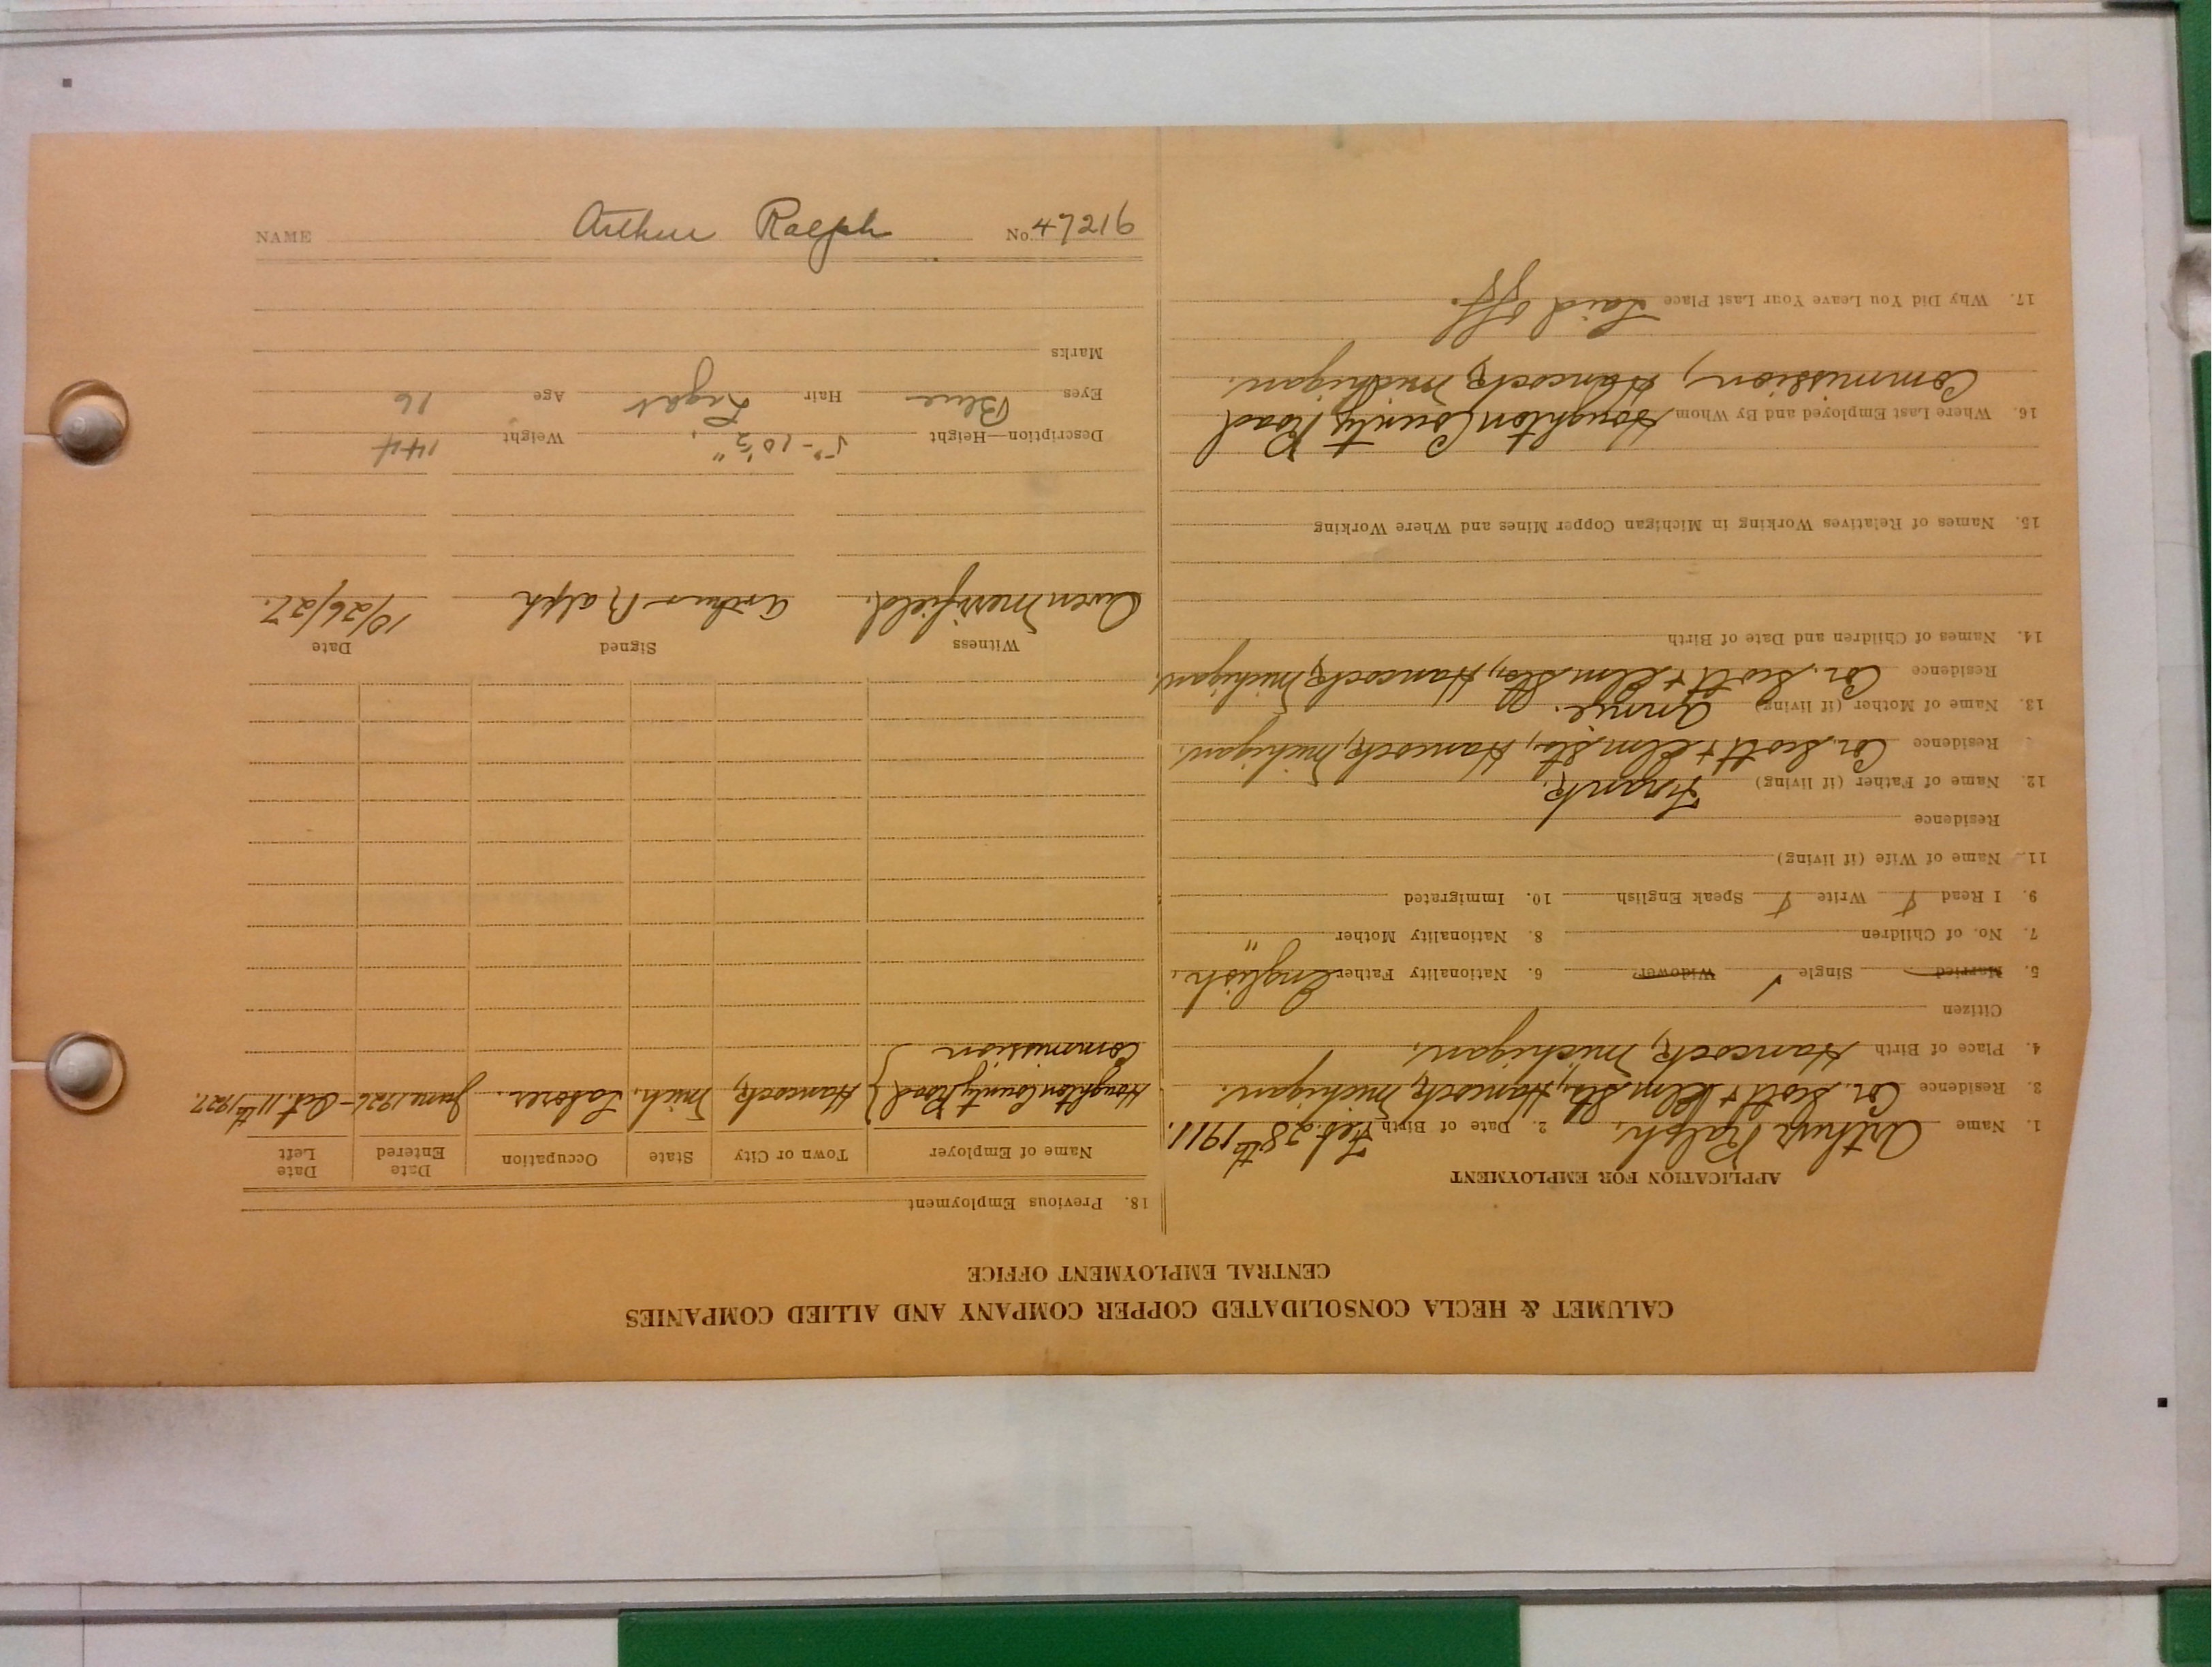 CALUMET & HECLA CONSOLIDATED COPPER COMPANY AND ALLIED COMPANIES
CENTRAL EMPLOYMENT OFFICE
APPLICATION FOR EMPLOYMENT
1. Name Arthur Ralph. 2. Date of Birth Feb. 28th 1911.
3. Residence Cor. Scott & Elm Sts, Hancock, Michigan.
4. Place of Birth Hancock, Michigan.
Citizen
5. Married Single ✓ Widower 6. Nationality Father English.
7. No. of Children 8. Nationality Mother "
9. I Read Write Speak English 10. Immigrated
11. Name of Wife (if living)
Residence
12. Name of Father (if living) Frank.
Residence Cor. Scott & Elm Sts, Hancock, Michigan.
13. Name of Mother (if living) Annie.
Residence Cor. Scott & Elm Sts, Hancock, Michigan.
14. Names of Children and Date of Birth
15. Names of Relatives Working in Michigan Copper Mines and Where Working
16. Where Last Employed and By Whom Houghton County Road
Commission, Hancock, Michigan.
17. Why Did You Leave Your Last Place Laid off.
18. Previous Employment
Name of Employer Town or City State Occupation Date Entered Date Left
Houghton County Road } Hancock, Mich. Laborer. June 1926 - Oct. 11th 1927.
Commission
Witness Signed Date
Owen Merrifield. Arthur Ralph 10/26/27.
Description—Height 5'-10½" Weight 144
Eyes Blue Hair Light Age 16
Marks
NAME Arthur Ralph No 47216